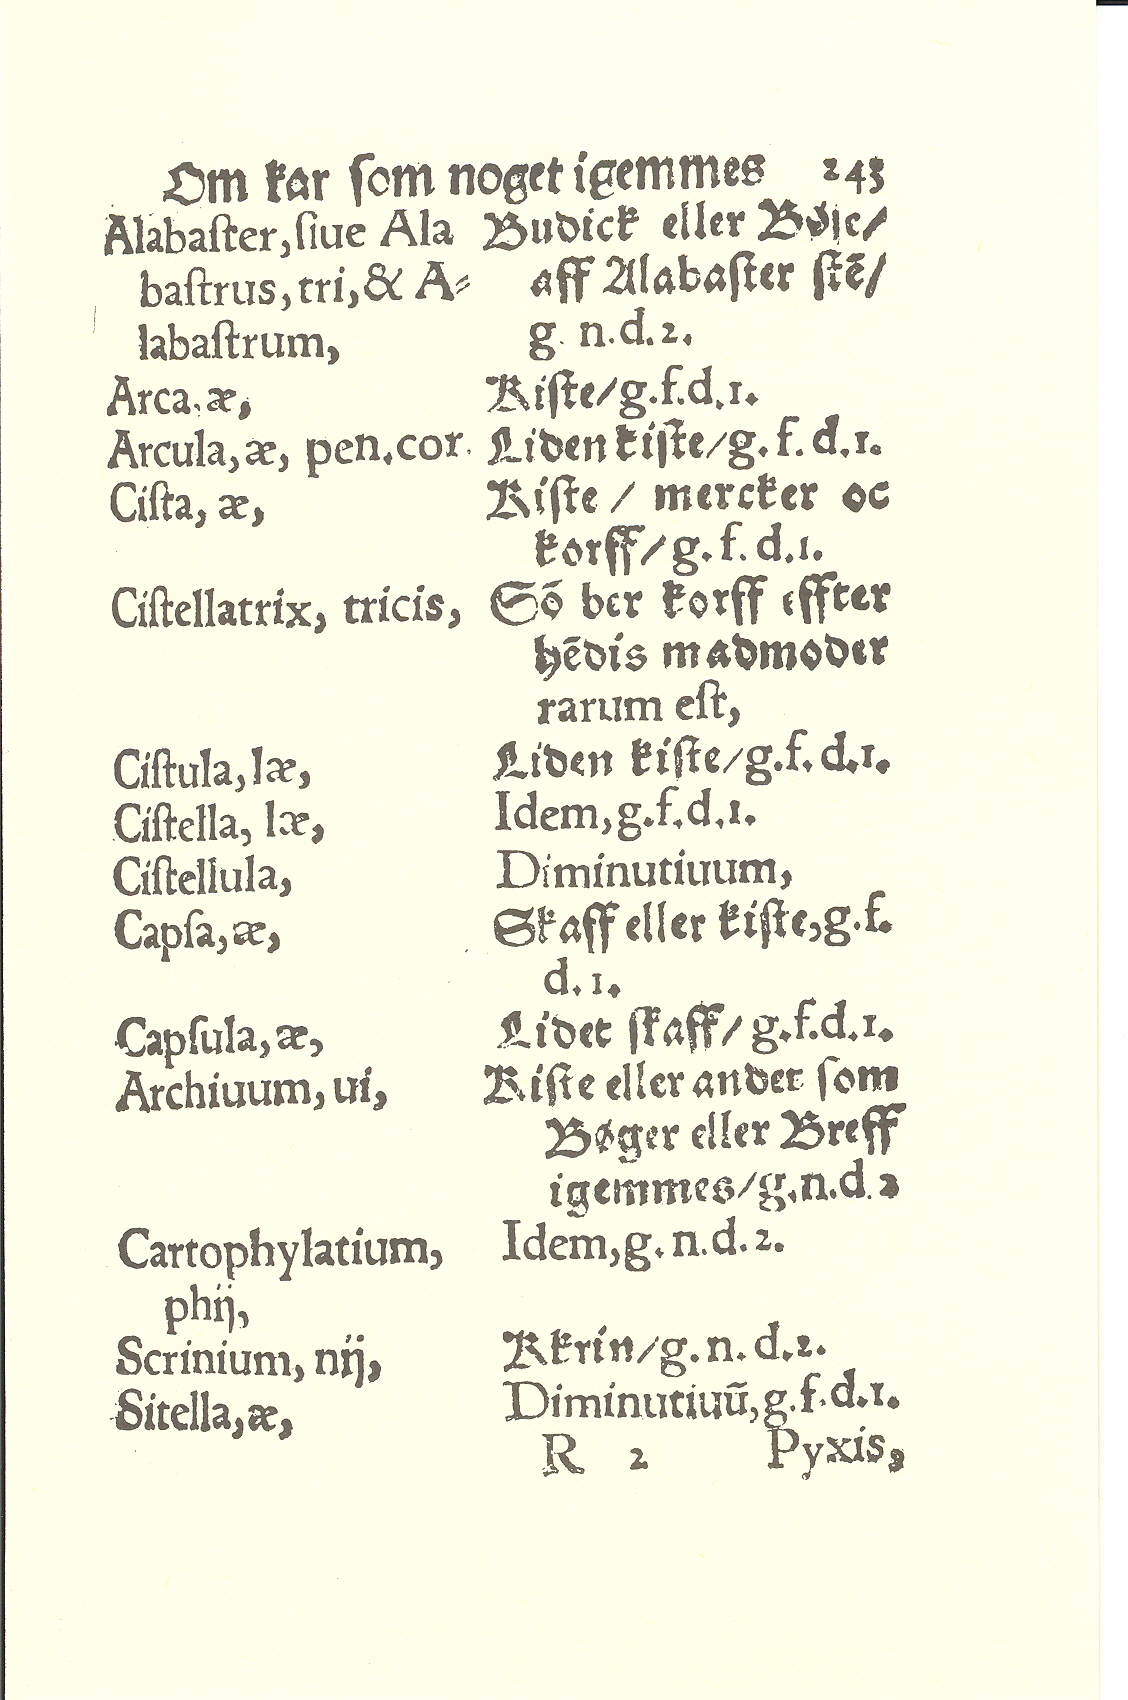 Om kar som noget igemmes 243
Alabaſter, ſiue Ala Budick eller Bøſe/
baſtrus, tri, & A⸗ aff Alabaſter ſtē/
labaſtrum, g. n. d. 2.
Arca, æ, Kiſte/ g. f. d. 1.
Arcula, æ, pen. cor. Liden kiſte/ g. f. d. 1.
Ciſta, æ, Kiſte / mercker oc
korff/ g. f. d. 1.
Ciſtellatrix, tricis, Sō ber korff effter
hēdis madmoder
rarum eſt,
Ciſtula, læ, Liden kiſte/ g. f. d. 1.
Ciſtella, læ, Idem, g. f. d. 1.
Ciſtellula, Diminutiuum,
Capſa, æ, Skaff eller kiſte, g. f.
d. 1.
Capſula, æ, Lidet ſkaff/ g. f. d. 1.
Archiuum, ui, Kiſte eller andet ſom
Bøger eller Breff
igemmes/ g. n. d. 2
Cartophylatium, Idem, g. n. d. 2.
phij,
Scrinium, nij, Kkrin/ g. n. d. 2.
Sitella, æ, Diminutiuū, g. f. d. 1.
R 2 Pyxis,